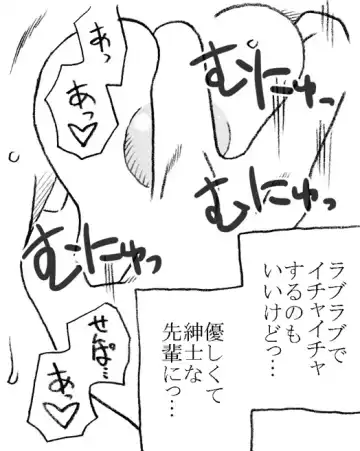 むにゅっ
むにゅっ
むにゅっ
あっ
あっ♡
ラブラブで
イチャイチャ
するのも
いいけどっ…
優しくて
紳士な
先輩にっ…
せぱ…
あっ♡